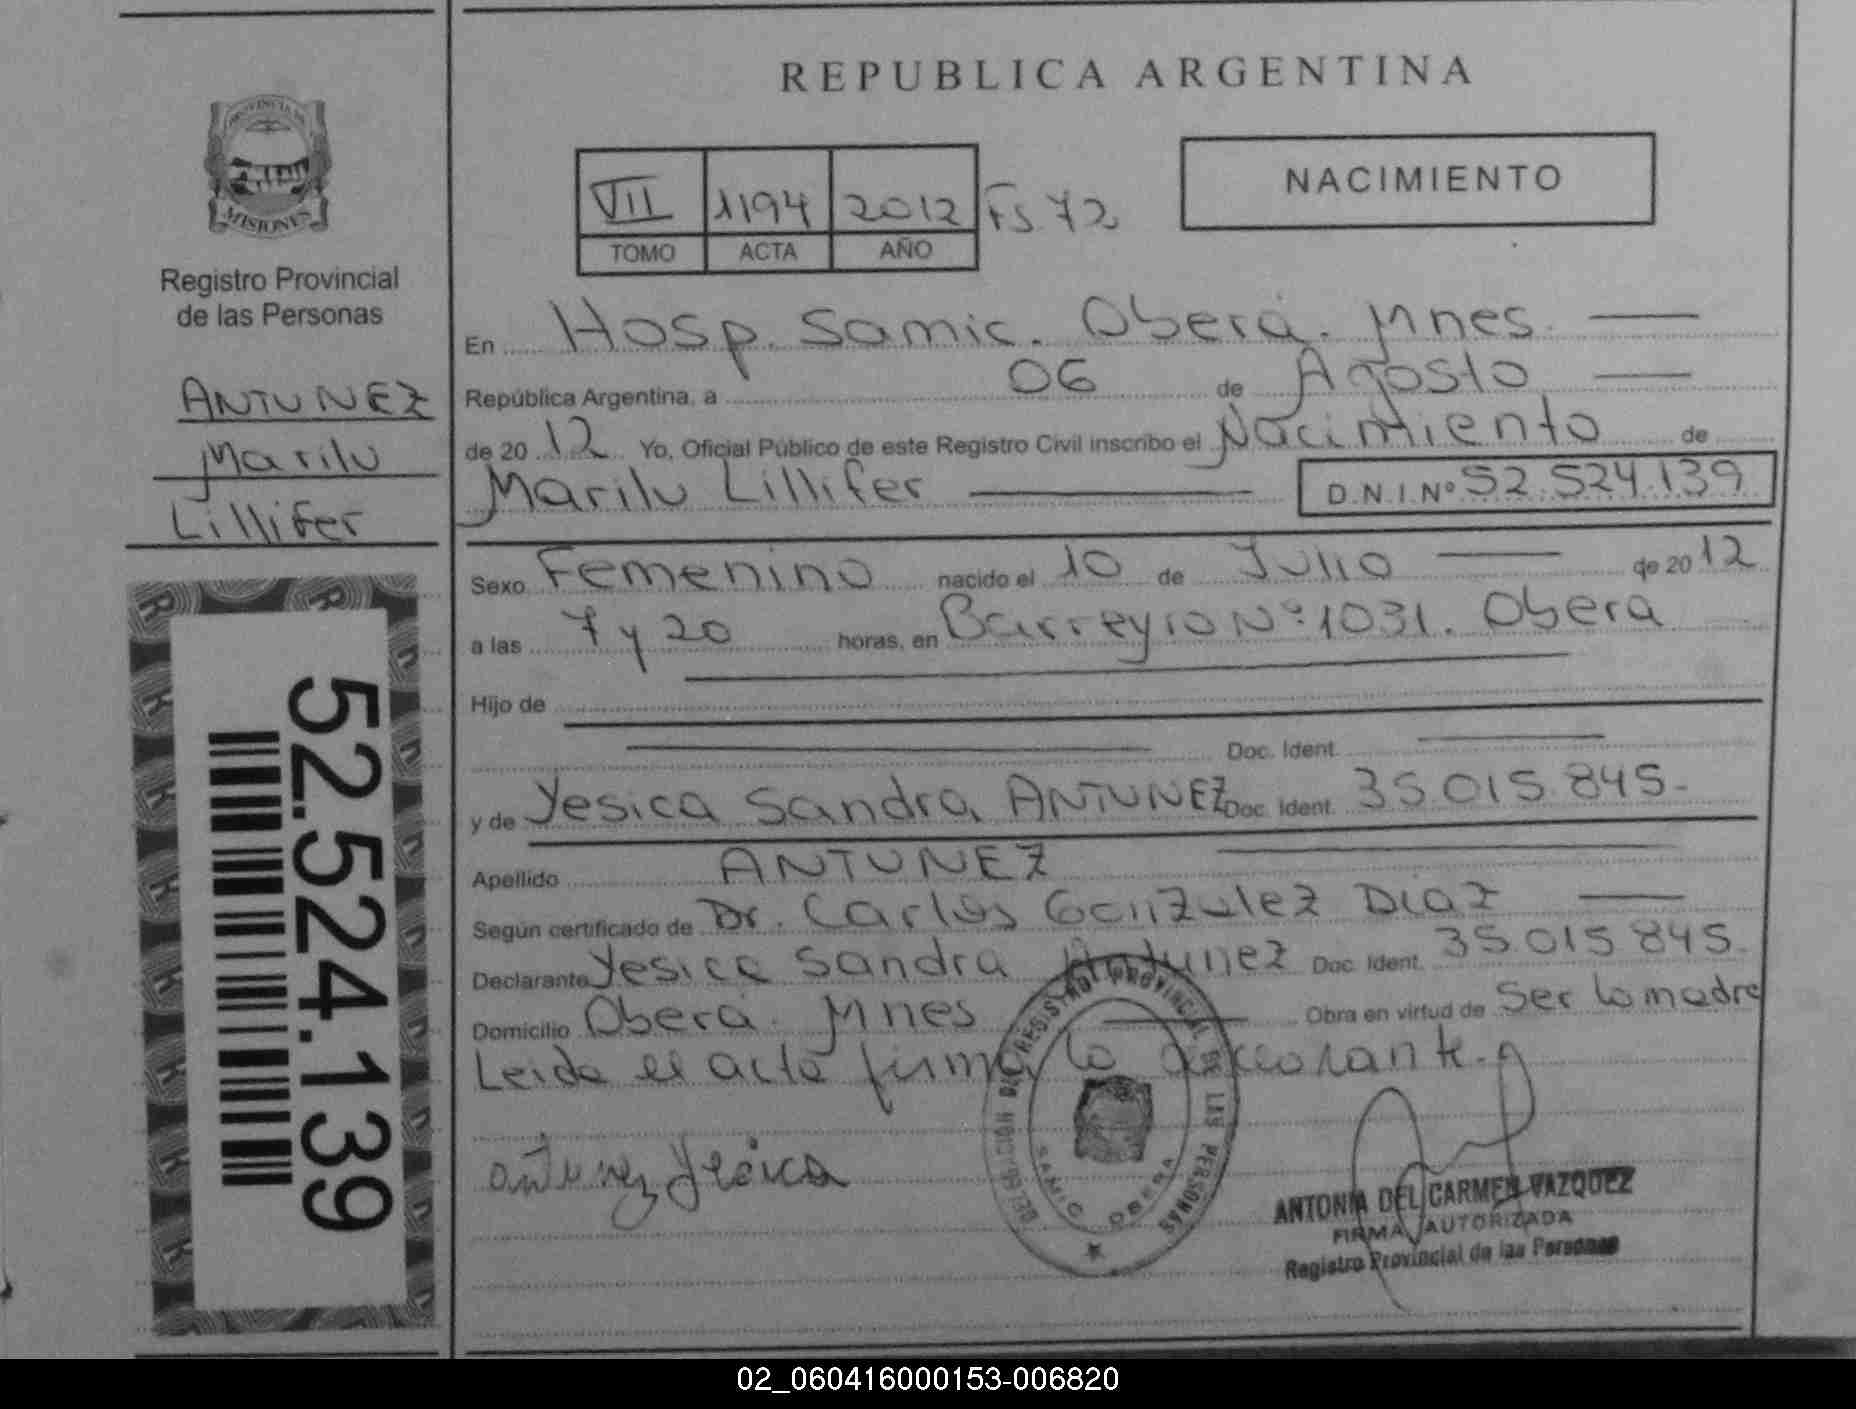 REPUBLICA ARGENTINA
PROVINCIA DE
MISIONES
Registro Provincial
de las Personas
ANTUNEZ
Marilu
Lillifer
52.524.139
VII 1194 2012 Fs 72
TOMO ACTA AÑO
NACIMIENTO
En Hosp. Samic. Oberá. Mnes.
República Argentina, a 06 de Agosto
de 20 12 Yo, Oficial Público de este Registro Civil inscribo el Nacimiento de
Marilu Lillifer D.N.I.Nº 52.524.139
Sexo Femenino nacido el 10 de Julio de 20 12
a las 7 y 20 horas, en Barreyro Nº 1031. Oberá
Hijo de
Doc. Ident.
y de Yesica Sandra ANTUNEZ Doc. Ident. 35.015.845.
Apellido ANTUNEZ
Según certificado de Dr. Carlos Gonzalez Diaz
Declarante Yesica Sandra Antunez Doc. Ident. 35.015.845.
Domicilio Oberá. Mnes Obra en virtud de Ser la madre
Leida el acta firma la declarante.
antunez Yesica
REGISTRO PROVINCIAL DE LAS PERSONAS
SAMIC OBERA
ANTONIA DEL CARMEN VAZQUEZ
FIRMA AUTORIZADA
Registro Provincial de las Personas
02_060416000153-006820